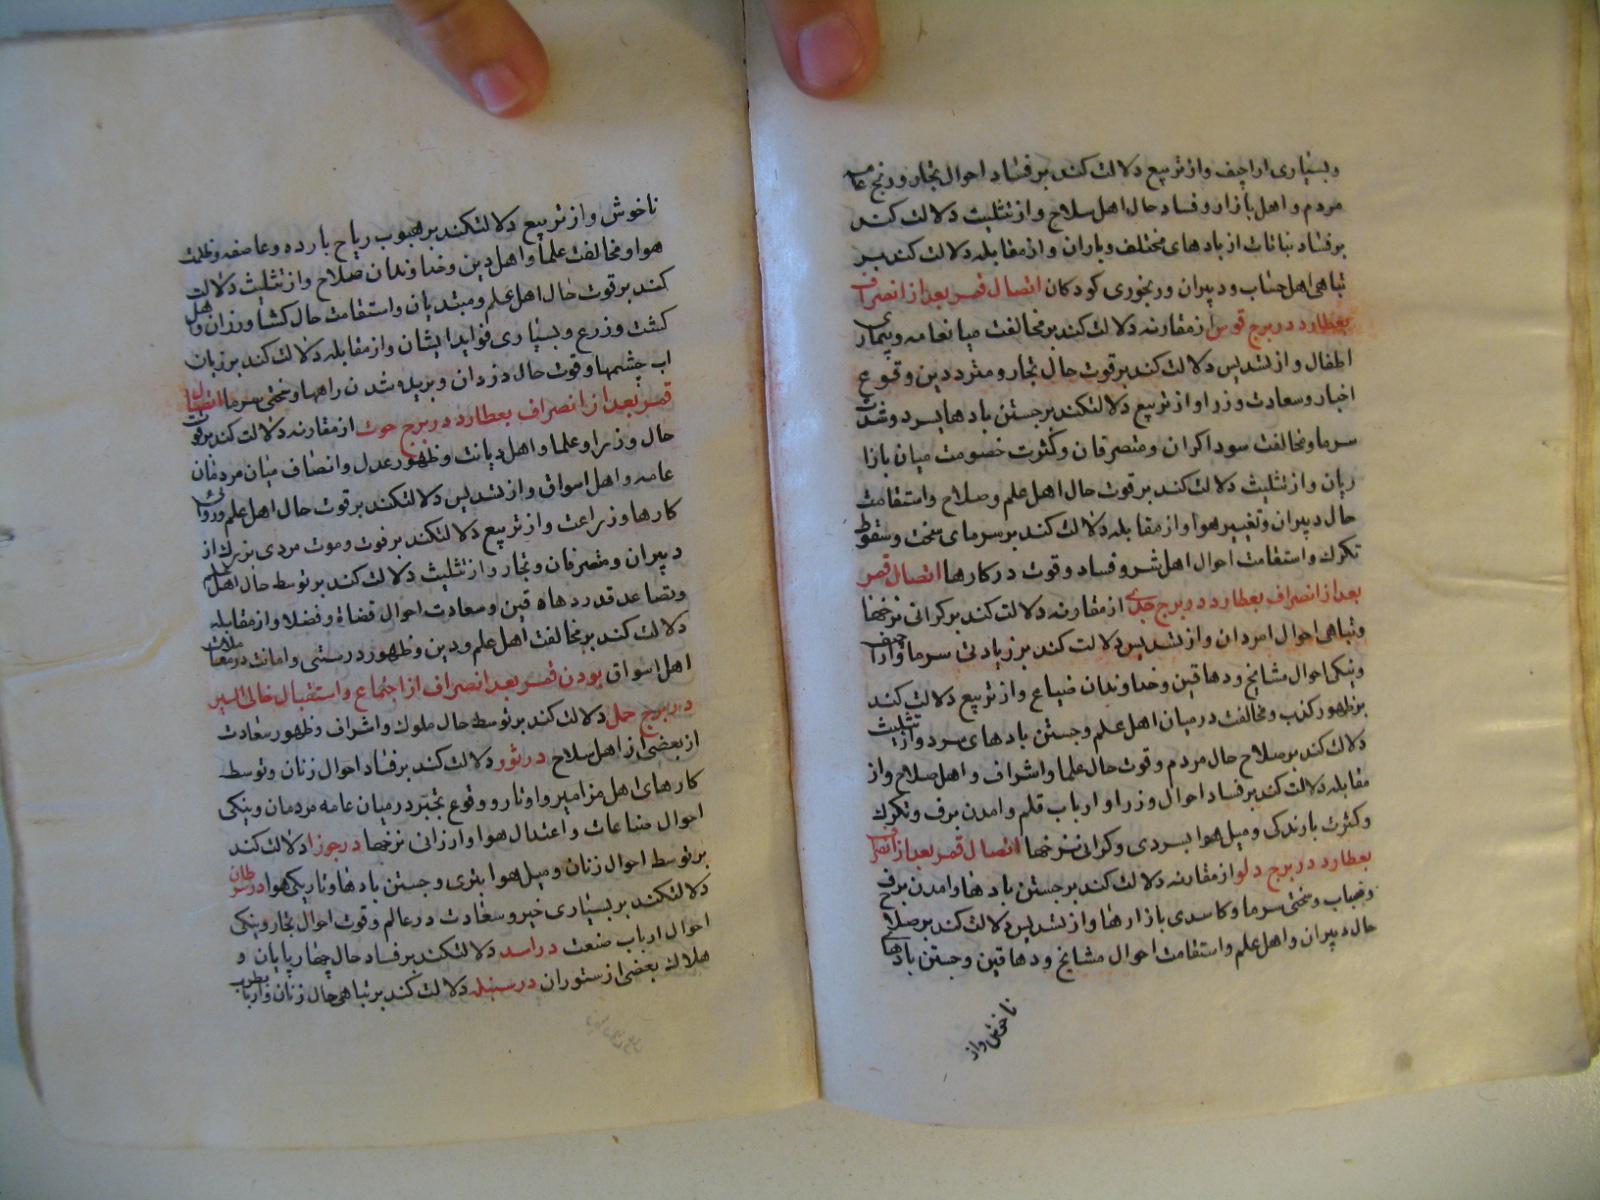 و بسیاری اراجیف و از تربیع دلالت کند بر فساد احوال تجار و رنج عامه
مردم و اهل بازار و فساد حال اهل سلاح و از تثلیث دلالت کند
بر فساد نباتات از بادهای مختلف و باران و از مقابله دلالت کند بر
تباهی اهل حساب و دبیران و رنجوری کودکان اتصال قمر بعد از انصراف
بعطارد در برج قوس از مقارنه دلالت کند بر مخالفت میان عامه و بیماری
اطفال و از تسدیس دلالت کند بر قوت حال تجار و مترددین و وقوع
اخبار و سعادت وزرا و از تربیع دلالتکند بر جستن بادهای سرد و شدت
سرما و مخالفت سوداکران و متصرفان و کثرت خصومت میان بازا
ریان و از تثلیث دلالت کند بر قوت حال اهل علم و صلاح و استقامت
حال دبیران و تغییر هوا و از مقابله دلالت کند بر سرمای سخت و سقوط
تکرک و استقامت احوال اهل شر و فساد و قوت در کارها اتصال قمر
بعد از انصراف بعطارد در برج جدی از مقارنه دلالت کند بر کرانی نرخها
و تباهی احوال امردان و از تسدیس دلالت کند بر زیادتی سرما و اراجیف
و نیکی احوال مشایخ و دهاقین و خداوندان ضیاع و از تربیع دلالت کند
بر ظهور کذب و مخالفت در میان اهل علم و جستن بادهای سرد و از تثلیث
دلالت کند بر صلاح حال مردم و قوت حال علما و اشراف و اهل صلاح و از
مقابله دلالت کند بر فساد احوال وزرا و ارباب قلم و امدن برف و تکرک
و کثرت بارندکی و میل هوا بسردی و کرانی نرخها اتصال قمر بعد از انصراف
بعطارد در برج دلو از مقارنه دلالت کند بر جستن بادها و امدن برف
و ضباب و سختی سرما و کاسدی بازارها و از تسدیس دلالت کند بر صلاح
حال دبیران و اهل علم و استقامت احوال مشایخ و دهاقین و جستن بادهاء
ناخوش و از
ناخوش و از تربیع دلالتکند بر هبوب ریاح بارده و عاصفه و ظلمت
هوا و مخالفت علما و اهل دین و خداوندان صلاح و از تثلیث دلالت
کند بر قوت حال اهل علم و مبتدیان و استقامت حال کشاورزان و اهل
کشت و زرع و بسیاری فواید ایشان و از مقابله دلالت کند بر زیان
اب چشمها و قوت حال دزدان و بریده شدن راهها و سختی سرما اتصال
قمر بعد از انصراف بعطارد در برج حوت از مقارنه دلالت کند بر قوت
حال وزرا و علما و اهل دیانت و ظهور عدل و انصاف میان مردمان
عامه و اهل اسواق و از تسدیس دلالتکند بر قوت حال اهل علم و رواق
کارها و زراعت و از تربیع دلالتکند بر فوت و موت مردی بزرک از
دبیران و متصرفان و تجار و از تثلیث دلالت کند بر توسط حال اهل علم
و تصاعد قدر دهاقین و سعادت احوال قضاة و فضلا و از مقابله
دلالت کند بر مخالفت اهل علم و دین و ظهور درستی و امانت در معاملات
اهل اسواق بودن قمر بعد انصراف از اجتماع و استقبال خالی السیر
در برج حمل دلالت کند بر توسط حال ملوک و اشراف و ظهور سعادت
از بعضی از اهل سلاح در ثور دلالت کند بر فساد احوال زنان و توسط
کارهای اهل مزامیر و اوتار و وقوع تجبر در میان عامه مردمان و نیکی
احوال صناعات و اعتدال هوا و ارزانی نرخها در جوزا دلالت کند
بر توسط احوال زنان و میل هوا بتری و جستن بادها و تاریکی هوا در سرطان
دلالتکند بر بسیاری خیر و سعادت در عالم و قوت احوال تجار و نیکی
احوال ارباب صنعت در اسد دلالتکند بر فساد حال چهارپایان و
هلاک بعضی از ستوران در سنبله دلالت کند بر تباهی حال زنان و ارباب طرب